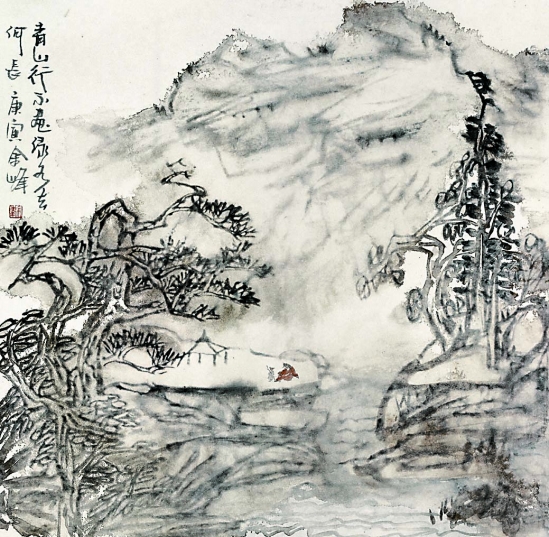 青山行不盡绿水去
何长 庚寅余峰